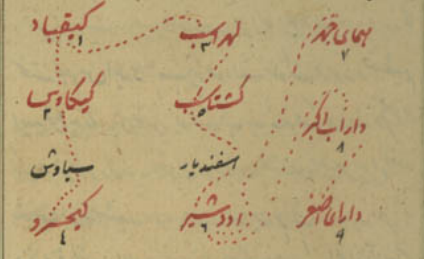 کیقباد
۱
کیکاوس
۲
سیاوش
کیخسرو
۴
لهراسب
۳
گشتاسب
۵
اسفندیار
اردشیر
۶
همای چهر
۷
داراب اکبر
۸
دارای اصغر
۹